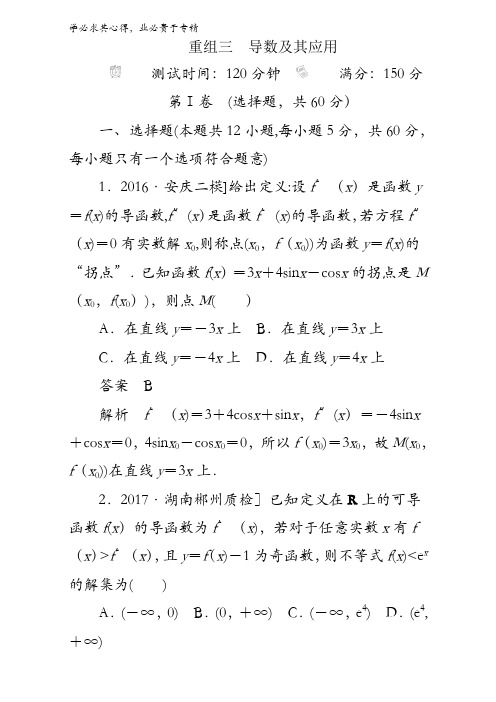 学必求其心得，业必贵于专精
重组三　导数及其应用
测试时间：120分钟　满分：150分
第Ⅰ卷　(选择题，共60分）
一、选择题(本题共12小题,每小题5分，共60分，
每小题只有一个选项符合题意)
1．2016·安庆二模]给出定义:设f′（x）是函数y
＝f(x)的导函数,f″(x)是函数f′(x)的导函数，若方程f″
（x)=0有实数解x₀,则称点(x₀，f（x₀))为函数y＝f(x)的
“拐点”．已知函数f(x）＝3x＋4sinx－cosx的拐点是M
（x₀，f(x₀）)，则点M(　　）
A．在直线y＝－3x上　B．在直线y＝3x上
C．在直线y＝－4x上　D．在直线y＝4x上
答案　B
解析　f′（x)＝3＋4cosx＋sinx，f″(x）＝－4sinx
＋cosx＝0，4sinx₀－cosx₀＝0，所以f（x₀)＝3x₀，故M(x₀，
f（x₀))在直线y＝3x上．
2．2017·湖南郴州质检］已知定义在R上的可导
函数f(x）的导函数为f′（x)，若对于任意实数x有f
（x)>f′（x)，且y＝f(x)－1为奇函数，则不等式f(x)<eˣ
的解集为(　　)
A．(－∞，0)　B．(0，＋∞)　C．(－∞，e⁴)　D．(e⁴，
＋∞)